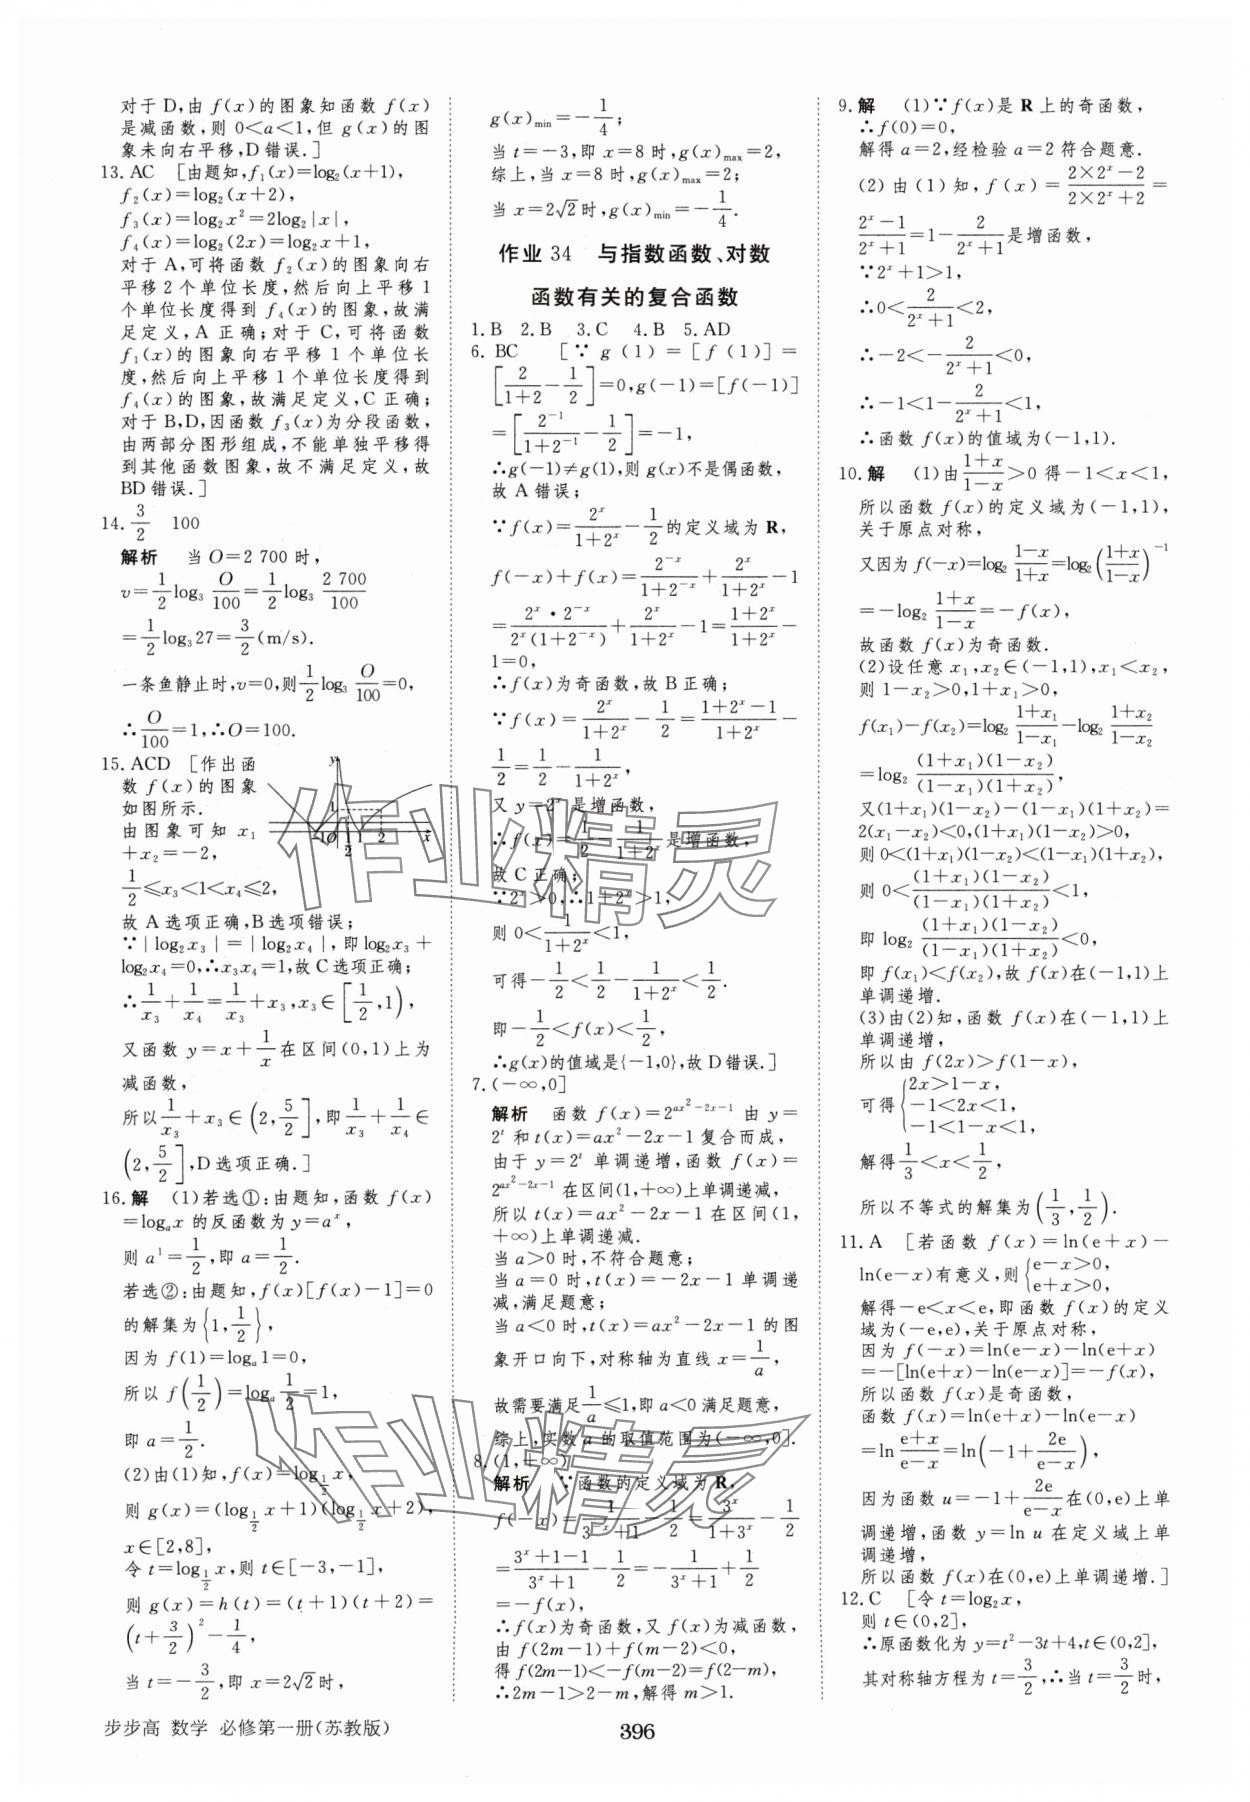 对于 D,由 f(x)的图象知函数 f(x)
是减函数,则 0<a<1,但 g(x)的图
象未向右平移,D 错误.]
13. AC [由题知,f₁(x)=log₂(x+1),
f₂(x)=log₂(x+2),
f₃(x)=log₂x²=2log₂|x|,
f₄(x)=log₂(2x)=log₂x+1,
对于 A,可将函数 f₂(x)的图象向右
平移 2 个单位长度,然后向上平移 1
个单位长度得到 f₄(x)的图象,故满
足定义,A 正确;对于 C,可将函数
f₁(x)的图象向右平移 1 个单位长
度,然后向上平移 1 个单位长度得到
f₄(x)的图象,故满足定义,C 正确;
对于 B,D,因函数 f₃(x)为分段函数,
由两部分图形组成,不能单独平移得
到其他函数图象,故不满足定义,故
BD 错误.]
14. 3/2 100
解析 当 O=2 700 时,
v=1/2 log₃ O/100=1/2 log₃ 2 700/100
=1/2 log₃27=3/2(m/s).
一条鱼静止时,v=0,则 1/2 log₃ O/100=0,
∴O/100=1,∴O=100.
15. ACD [作出函
数 f(x)的图象
如图所示.
由图象可知 x₁
+x₂=-2,
1/2≤x₃<1<x₄≤2,
故 A 选项正确,B 选项错误;
∵|log₂x₃|=|log₂x₄|,即 log₂x₃+
log₂x₄=0,∴x₃x₄=1,故 C 选项正确;
∴1/x₃+1/x₄=1/x₃+x₃,x₃∈[1/2,1),
又函数 y=x+1/x 在区间(0,1)上为
减函数,
所以 1/x₃+x₃∈(2,5/2],即 1/x₃+1/x₄∈
(2,5/2],D 选项正确.]
16. 解 (1)若选①:由题知,函数 f(x)
=logₐx 的反函数为 y=aˣ,
则 a¹=1/2,即 a=1/2.
若选②:由题知,f(x)[f(x)-1]=0
的解集为{1,1/2},
因为 f(1)=logₐ1=0,
所以 f(1/2)=logₐ 1/2=1,
即 a=1/2.
(2)由(1)知,f(x)=log_{1/2} x,
则 g(x)=(log_{1/2} x+1)(log_{1/2} x+2),
x∈[2,8],
令 t=log_{1/2} x,则 t∈[-3,-1],
则 g(x)=h(t)=(t+1)(t+2)=
(t+3/2)²-1/4,
当 t=-3/2,即 x=2√2时,
g(x)min=-1/4;
当 t=-3,即 x=8 时,g(x)max=2,
综上,当 x=8 时,g(x)max=2;
当 x=2√2时,g(x)min=-1/4.
作业 34 与指数函数、对数
函数有关的复合函数
1. B 2. B 3. C 4. B 5. AD
6. BC [∵ g(1)=[f(1)]=
[2/(1+2)-1/2]=0,g(-1)=[f(-1)]
=[2⁻¹/(1+2⁻¹)-1/2]=-1,
∴g(-1)≠g(1),则 g(x)不是偶函数,
故 A 错误;
∵f(x)=2ˣ/(1+2ˣ)-1/2 的定义域为 R,
f(-x)+f(x)=2⁻ˣ/(1+2⁻ˣ)+2ˣ/(1+2ˣ)-1
=2ˣ•2⁻ˣ/(2ˣ(1+2⁻ˣ))+2ˣ/(1+2ˣ)-1=(1+2ˣ)/(1+2ˣ)-
1=0,
∴f(x)为奇函数,故 B 正确;
∵f(x)=2ˣ/(1+2ˣ)-1/2=(1+2ˣ-1)/(1+2ˣ)-
1/2=1/2-1/(1+2ˣ),
又 y=2ˣ 是增函数,
∴f(x)=1/2-1/(1+2ˣ)是增函数,
故 C 正确;
∵2ˣ>0,∴1+2ˣ>1,
则 0<1/(1+2ˣ)<1,
可得-1/2<1/2-1/(1+2ˣ)<1/2.
即-1/2<f(x)<1/2,
∴g(x)的值域是{-1,0},故 D 错误.]
7. (-∞,0]
解析 函数 f(x)=2^(ax²-2x-1) 由 y=
2ᵗ 和 t(x)=ax²-2x-1 复合而成,
由于 y=2ᵗ 单调递增,函数 f(x)=
2^(ax²-2x-1) 在区间(1,+∞)上单调递减,
所以 t(x)=ax²-2x-1 在区间(1,
+∞)上单调递减.
当 a>0 时,不符合题意;
当 a=0 时,t(x)=-2x-1 单调递
减,满足题意;
当 a<0 时,t(x)=ax²-2x-1 的图
象开口向下,对称轴为直线 x=1/a,
故需要满足 1/a≤1,即 a<0 满足题意,
综上,实数 a 的取值范围为(-∞,0].
8. (1,+∞)
解析 ∵函数的定义域为 R,
f(-x)=1/(3⁻ˣ+1)-1/2=3ˣ/(1+3ˣ)-1/2
=(3ˣ+1-1)/(3ˣ+1)-1/2=-1/(3ˣ+1)+1/2
=-f(x),
∴f(x)为奇函数,又 f(x)为减函数,
由 f(2m-1)+f(m-2)<0,
得 f(2m-1)<-f(m-2)=f(2-m),
∴2m-1>2-m,解得 m>1.
9. 解 (1)∵f(x)是 R 上的奇函数,
∴f(0)=0,
解得 a=2,经检验 a=2 符合题意.
(2)由(1)知,f(x)=(2×2ˣ-2)/(2×2ˣ+2)=
(2ˣ-1)/(2ˣ+1)=1-2/(2ˣ+1)是增函数,
∵2ˣ+1>1,
∴0<2/(2ˣ+1)<2,
∴-2<-2/(2ˣ+1)<0,
∴-1<1-2/(2ˣ+1)<1,
∴函数 f(x)的值域为(-1,1).
10. 解 (1)由(1+x)/(1-x)>0 得-1<x<1,
所以函数 f(x)的定义域为(-1,1),
关于原点对称,
又因为 f(-x)=log₂ (1-x)/(1+x)=log₂((1+x)/(1-x))⁻¹
=-log₂ (1+x)/(1-x)=-f(x),
故函数 f(x)为奇函数.
(2)设任意 x₁,x₂∈(-1,1),x₁<x₂,
则 1-x₂>0,1+x₁>0,
f(x₁)-f(x₂)=log₂ (1+x₁)/(1-x₁)-log₂ (1+x₂)/(1-x₂)
=log₂ (1+x₁)(1-x₂)/(1-x₁)(1+x₂),
又(1+x₁)(1-x₂)-(1-x₁)(1+x₂)=
2(x₁-x₂)<0,(1+x₁)(1-x₂)>0,
则 0<(1+x₁)(1-x₂)<(1-x₁)(1+x₂),
则 0<(1+x₁)(1-x₂)/(1-x₁)(1+x₂)<1,
即 log₂ (1+x₁)(1-x₂)/(1-x₁)(1+x₂)<0,
即 f(x₁)<f(x₂),故 f(x)在(-1,1)上
单调递增.
(3)由(2)知,函数 f(x)在(-1,1)上
单调递增,
所以由 f(2x)>f(1-x),
可得{2x>1-x,
-1<2x<1,
-1<1-x<1,
解得 1/3<x<1/2,
所以不等式的解集为(1/3,1/2).
11. A [若函数 f(x)=ln(e+x)-
ln(e-x)有意义,则{e-x>0,
e+x>0,
解得-e<x<e,即函数 f(x)的定义
域为(-e,e),关于原点对称,
因为 f(-x)=ln(e-x)-ln(e+x)
=-[ln(e+x)-ln(e-x)]=-f(x),
所以函数 f(x)是奇函数,
函数 f(x)=ln(e+x)-ln(e-x)
=ln (e+x)/(e-x)=ln(-1+2e/(e-x)),
因为函数 u=-1+2e/(e-x)在(0,e)上单
调递增,函数 y=ln u 在定义域上单
调递增,
所以函数 f(x)在(0,e)上单调递增.]
12. C [令 t=log₂x,
则 t∈(0,2],
∴原函数化为 y=t²-3t+4,t∈(0,2],
其对称轴方程为 t=3/2,∴当 t=3/2时,
步步高 数学 必修第一册(苏教版)
396
作业精灵
作业精灵